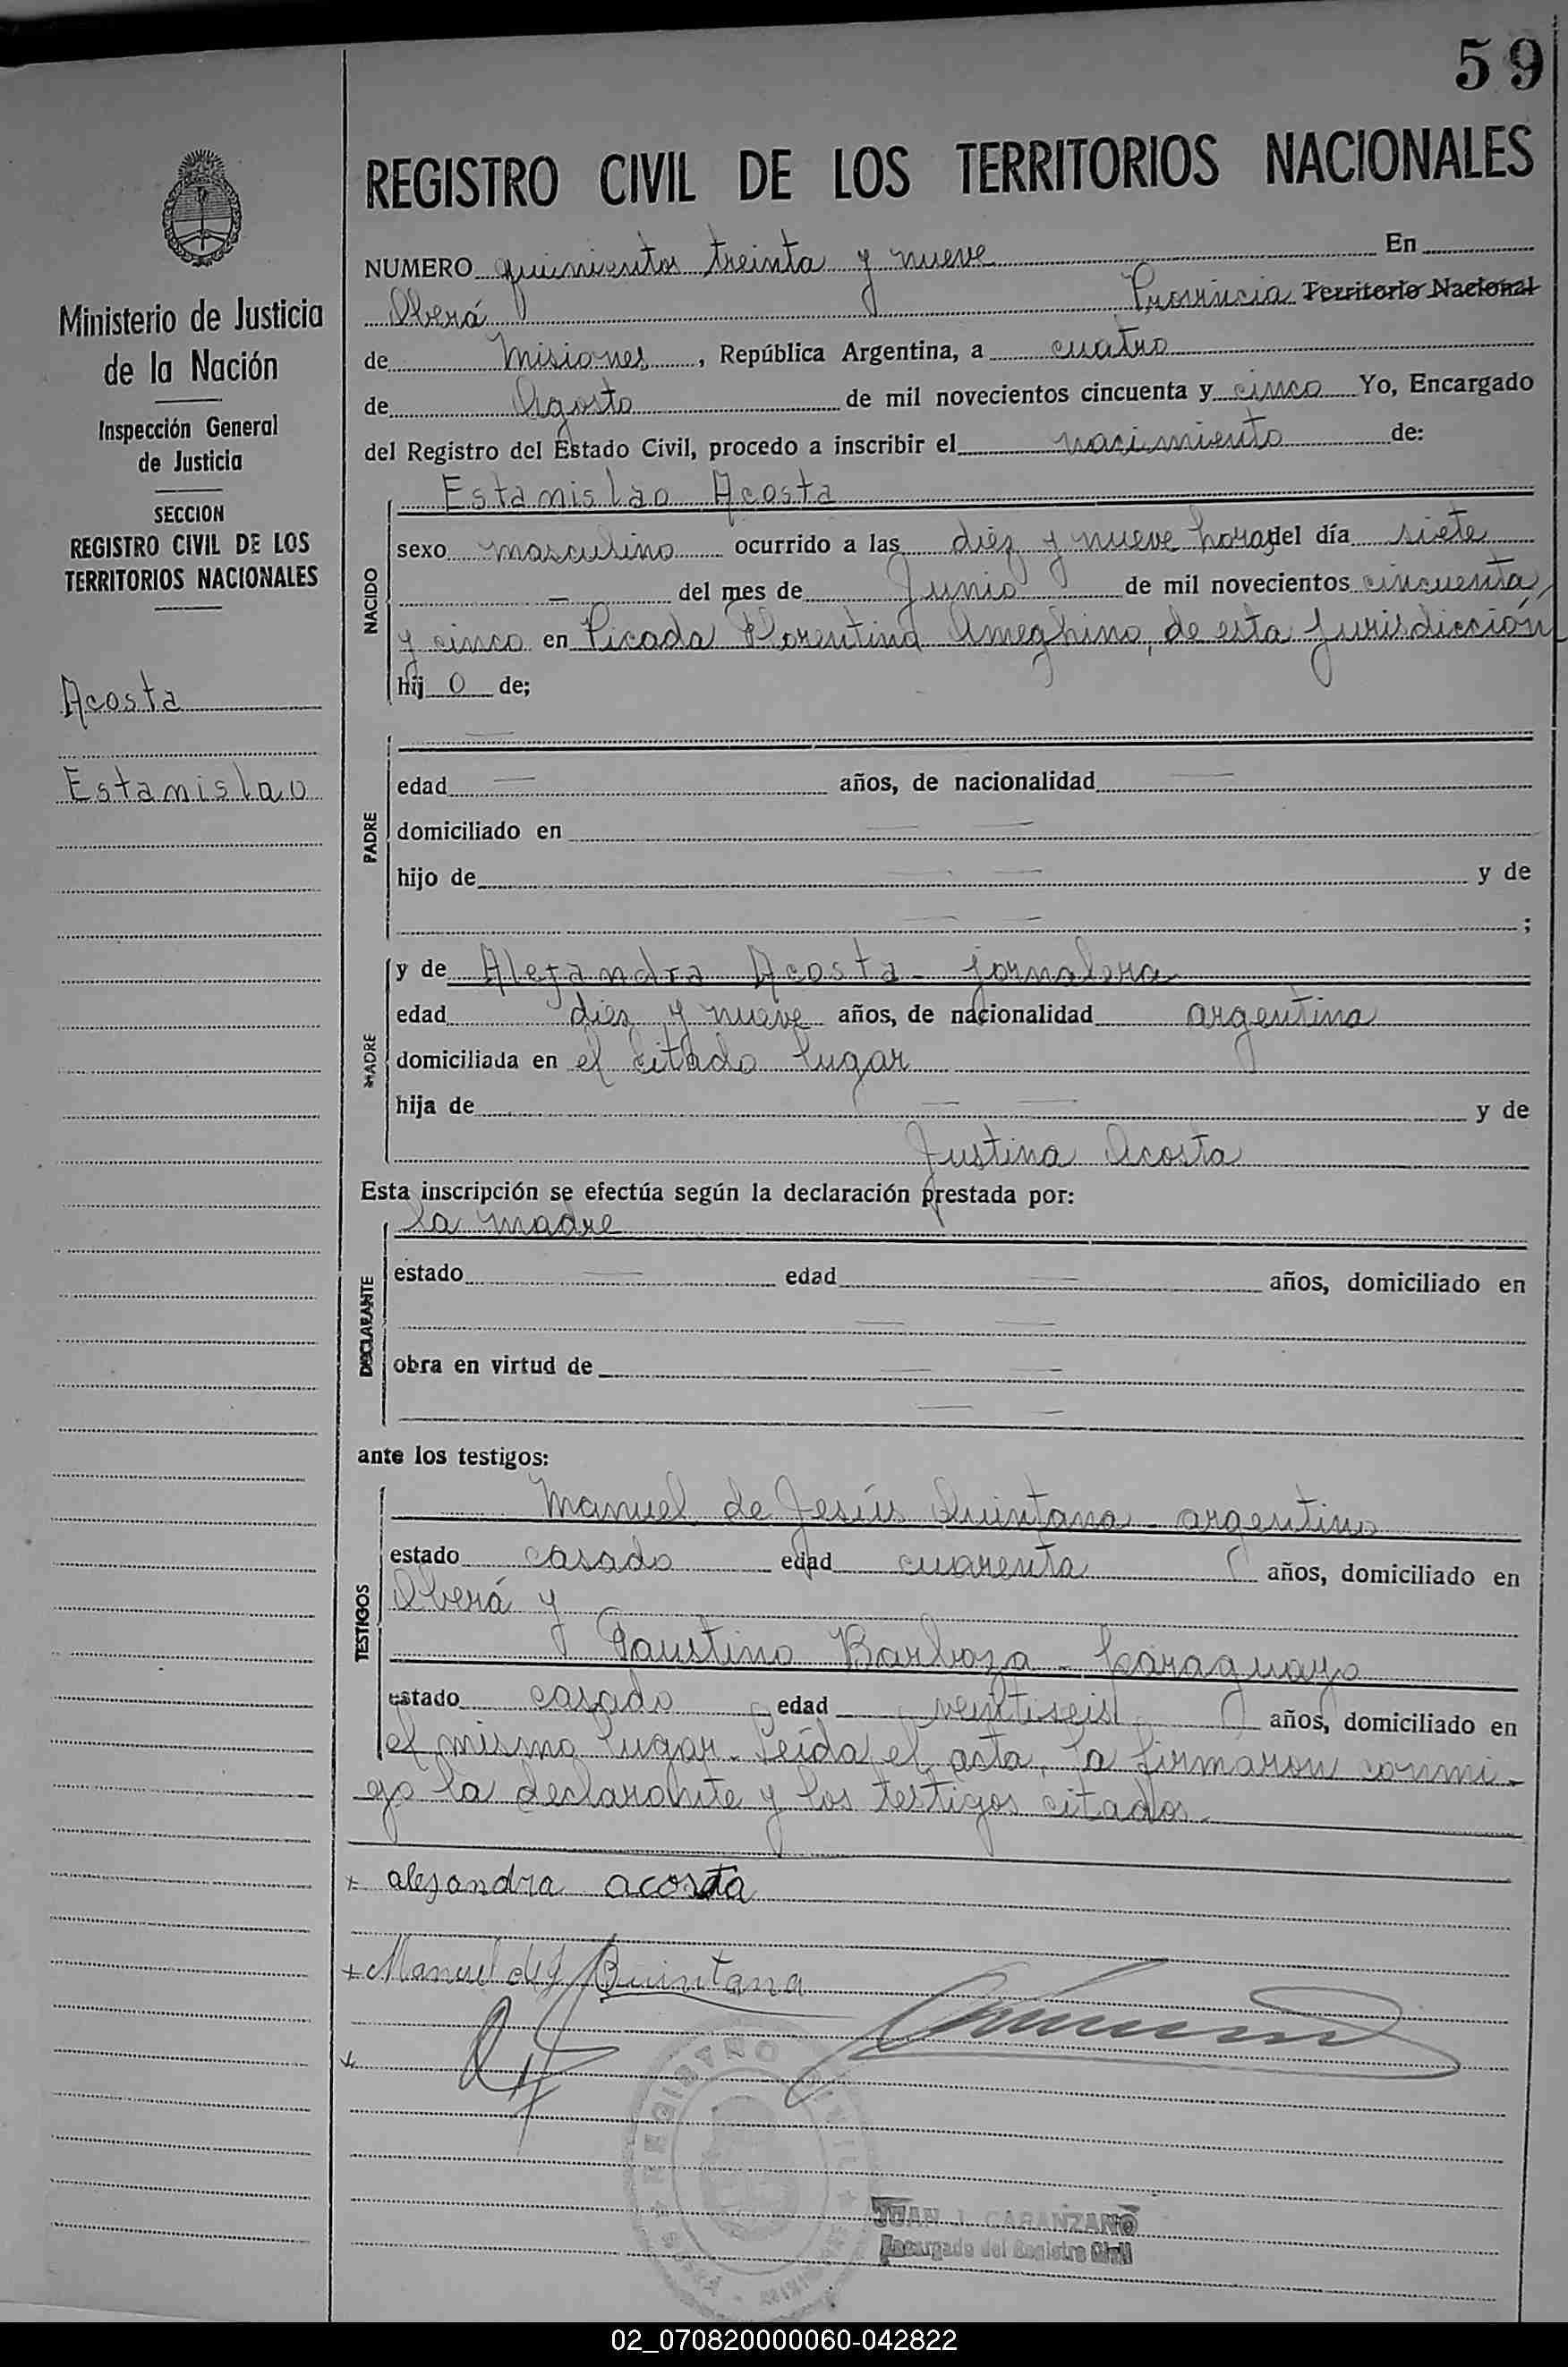 59
REGISTRO CIVIL DE LOS TERRITORIOS NACIONALES
Ministerio de Justicia
de la Nación
Inspección General
de Justicia
SECCION
REGISTRO CIVIL DE LOS
TERRITORIOS NACIONALES
Acosta
Estanislao
NUMERO quinientos treinta y nueve En
Oberá Provincia Territorio Nacional
de Misiones, República Argentina, a cuatro
de Agosto de mil novecientos cincuenta y cinco Yo, Encargado
del Registro del Estado Civil, procedo a inscribir el nacimiento de:
NACIDO
Estanislao Acosta
sexo masculino ocurrido a las diez y nueve horas del día siete
— del mes de Junio de mil novecientos cincuenta
y cinco en Picada Florentino Ameghino, de esta Jurisdicción,
hij o de;
PADRE
—
edad — años, de nacionalidad —
domiciliado en — —
hijo de — — y de
— — ;
MADRE
y de Alejandra Acosta - jornalera
edad diez y nueve años, de nacionalidad argentina
domiciliada en el citado lugar
hija de — — y de
Justina Acosta
Esta inscripción se efectúa según la declaración prestada por:
DECLARANTE
la madre
estado — edad — años, domiciliado en
— —
obra en virtud de — —
— —
ante los testigos:
TESTIGOS
Manuel de Jesús Quintana - argentino
estado casado edad cuarenta años, domiciliado en
Oberá y
Faustino Barboza - paraguayo
estado casado edad veintiseis años, domiciliado en
el mismo lugar. Leída el acta, la firmaron conmi-
go la declarante y los testigos citados.
+ alejandra acosta
+ Manuel de J Quintana
+
REGISTRO CIVIL
JUAN J. CARANZANO
Encargado del Registro Civil
02_070820000060-042822